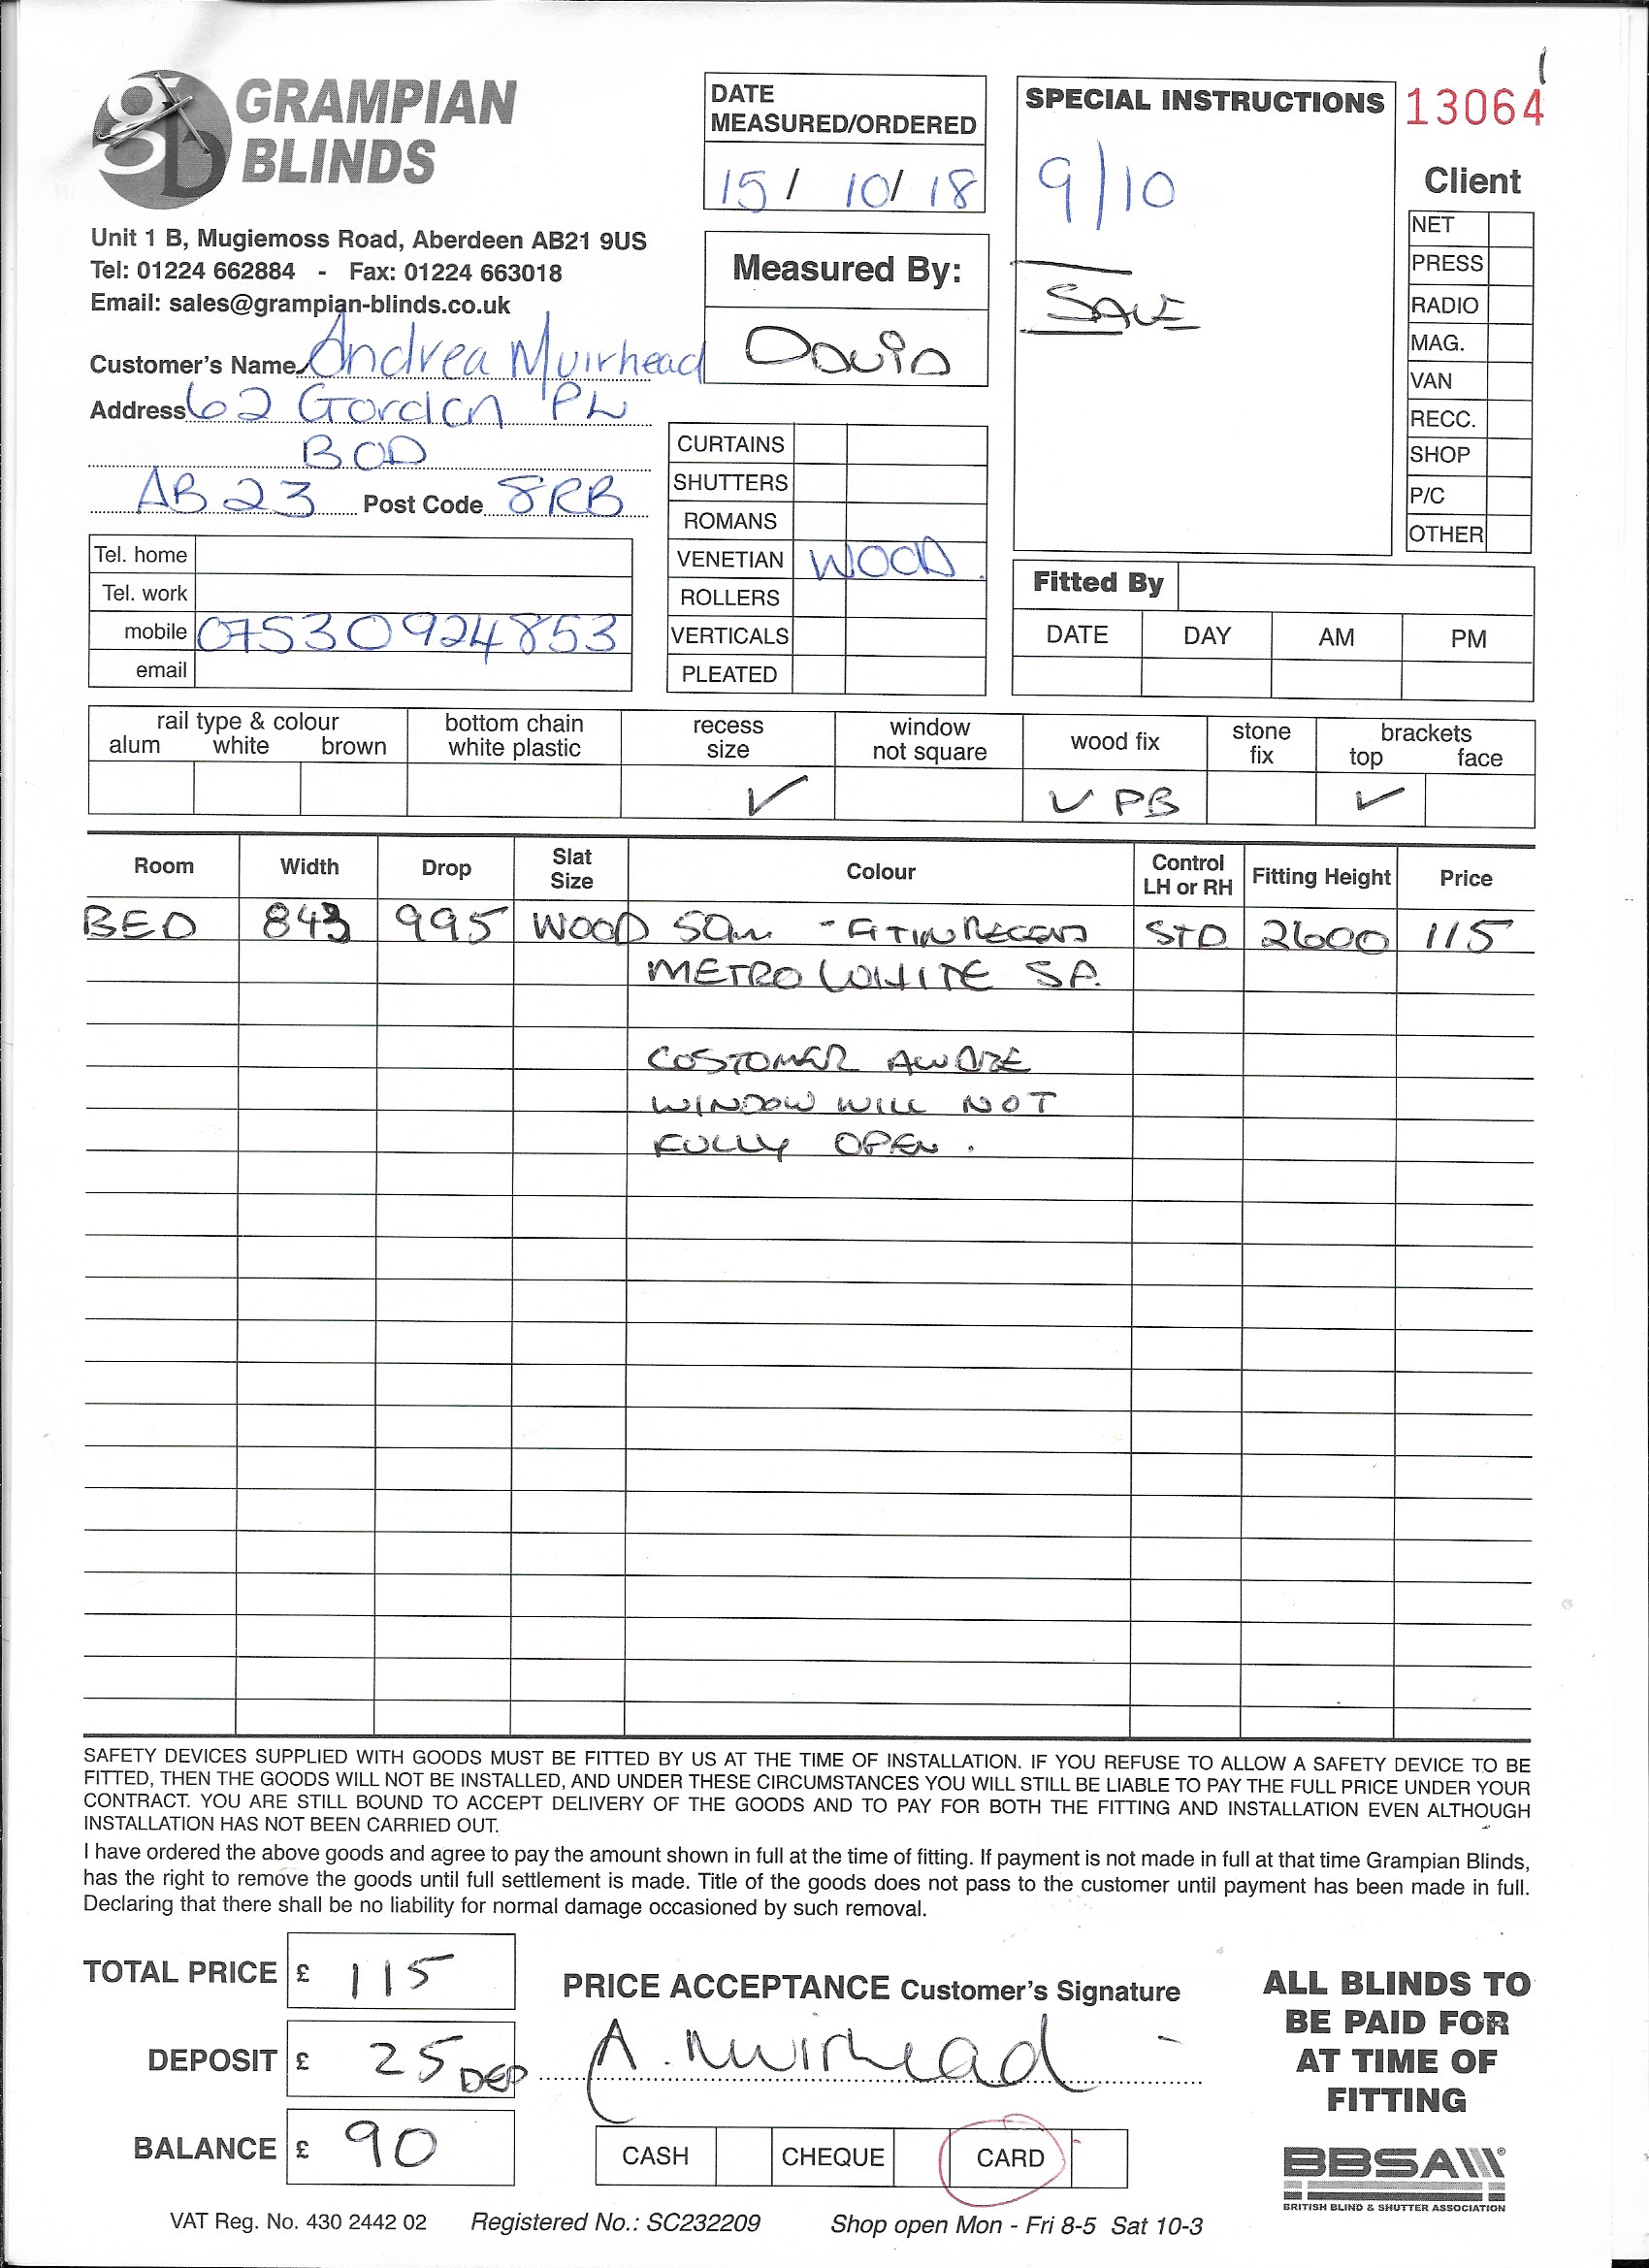 GRAMPIAN
BLINDS
Unit 1 B, Mugiemoss Road, Aberdeen AB21 9US
Tel: 01224 662884 - Fax: 01224 663018
Email: sales@grampian-blinds.co.uk
DATE
MEASURED/ORDERED
15 / 10 / 18
Measured By:
David
SPECIAL INSTRUCTIONS
9/10
SALE
13064
Client
NET
PRESS
RADIO
MAG.
VAN
RECC.
SHOP
P/C
OTHER
Customer's Name Andrea Muirhead
Address 62 Gordon PL
BOD
AB23 Post Code 8RB
Tel. home
Tel. work
mobile 07530924853
email
CURTAINS
SHUTTERS
ROMANS
VENETIAN WOOD
ROLLERS
VERTICALS
PLEATED
Fitted By
DATE DAY AM PM
rail type & colour
alum white brown
bottom chain
white plastic
recess
size
✓
window
not square
wood fix
✓ PB
stone
fix
brackets
top face
✓
Room Width Drop Slat Size Colour Control LH or RH Fitting Height Price
BED 843 995 WOOD 50m - FIT IN RECESS STD 2600 115
METRO WHITE
COSTOMER AWARE
WINDOW WILL NOT
FULLY OPEN.
SAFETY DEVICES SUPPLIED WITH GOODS MUST BE FITTED BY US AT THE TIME OF INSTALLATION. IF YOU REFUSE TO ALLOW A SAFETY DEVICE TO BE
FITTED, THEN THE GOODS WILL NOT BE INSTALLED, AND UNDER THESE CIRCUMSTANCES YOU WILL STILL BE LIABLE TO PAY THE FULL PRICE UNDER YOUR
CONTRACT. YOU ARE STILL BOUND TO ACCEPT DELIVERY OF THE GOODS AND TO PAY FOR BOTH THE FITTING AND INSTALLATION EVEN ALTHOUGH
INSTALLATION HAS NOT BEEN CARRIED OUT.
I have ordered the above goods and agree to pay the amount shown in full at the time of fitting. If payment is not made in full at that time Grampian Blinds,
has the right to remove the goods until full settlement is made. Title of the goods does not pass to the customer until payment has been made in full.
Declaring that there shall be no liability for normal damage occasioned by such removal.
TOTAL PRICE £ 115
DEPOSIT £ 25 DEP
BALANCE £ 90
PRICE ACCEPTANCE Customer's Signature
A. Muirhead
CASH CHEQUE CARD
ALL BLINDS TO
BE PAID FOR
AT TIME OF
FITTING
BBSA
BRITISH BLIND & SHUTTER ASSOCIATION
VAT Reg. No. 430 2442 02 Registered No.: SC232209 Shop open Mon - Fri 8-5 Sat 10-3